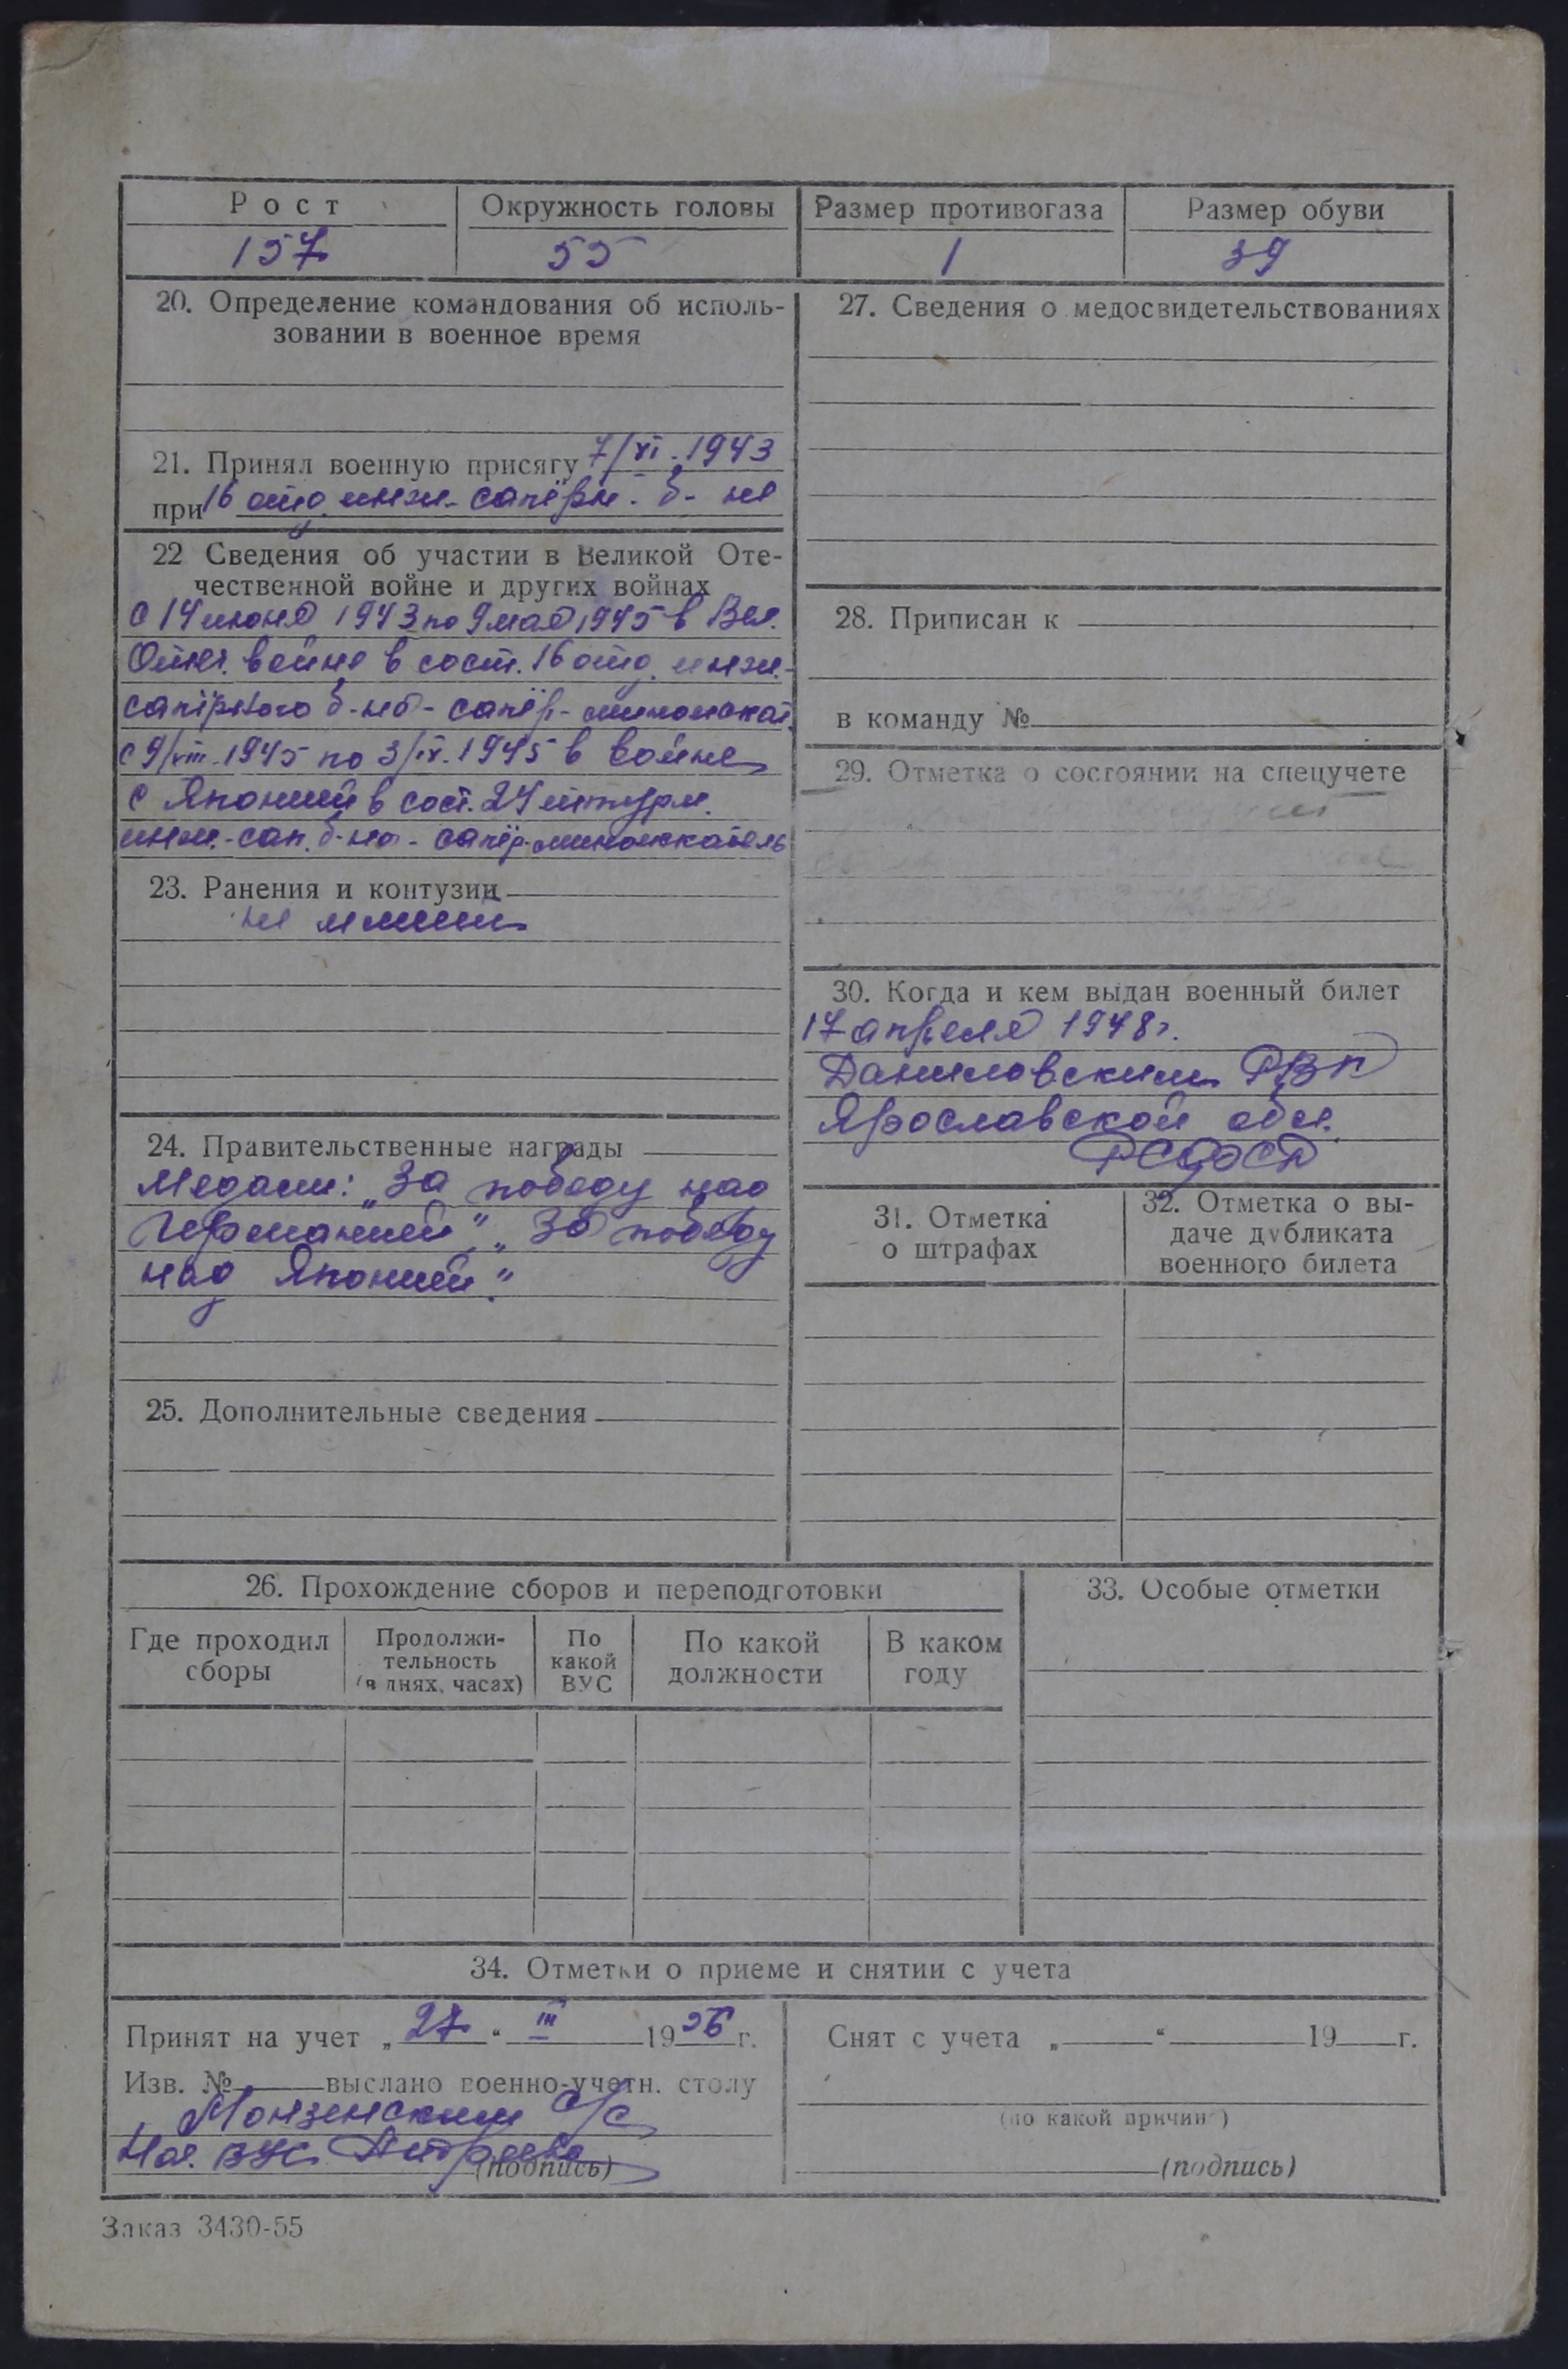 Рост
157
Окружность головы
55
Размер противогаза
1
Размер обуви
39
20. Определение командования об исполь-
зовании в военное время
21. Принял военную присягу 7/VI.1943
при 16 отд. инж-сапёрн. б-не
22 Сведения об участии в Великой Оте-
чественной войне и других войнах
с 14 июня 1943 по 9 мая 1945 в Вел.
Отеч. войне в сост. 16 отд. инж.-
сапёрного б-на - сапёр-миноискат.
с 9/VIII.1945 по 3/IX.1945 в войне
с Японией в сост. 24 штурм.
инж.-сап. б-на - сапёр-миноискатель
23. Ранения и контузии
не имеет
24. Правительственные награды
Медали: „За победу над
Германией", „За победу
над Японией".
25. Дополнительные сведения
27. Сведения о медосвидетельствованиях
28. Приписан к
в команду №
29. Отметка о состоянии на спецучете
30. Когда и кем выдан военный билет
17 апреля 1948г.
Даниловским РВК
Ярославской обл.
РСФСР
31. Отметка
о штрафах
32. Отметка о вы-
даче дубликата
военного билета
26. Прохождение сборов и переподготовки
Где проходил
сборы
Продолжи-
тельность
(в днях, часах)
По
какой
ВУС
По какой
должности
В каком
году
33. Особые отметки
34. Отметки о приеме и снятии с учета
Принят на учет „27" III 1956 г.
Изв. № выслано военно-учетн. столу
Монзенским с/с
Нач. ВУС Андреева
(подпись)
Снят с учета „ " 19 г.
(по какой причине)
(подпись)
Заказ 3430-55